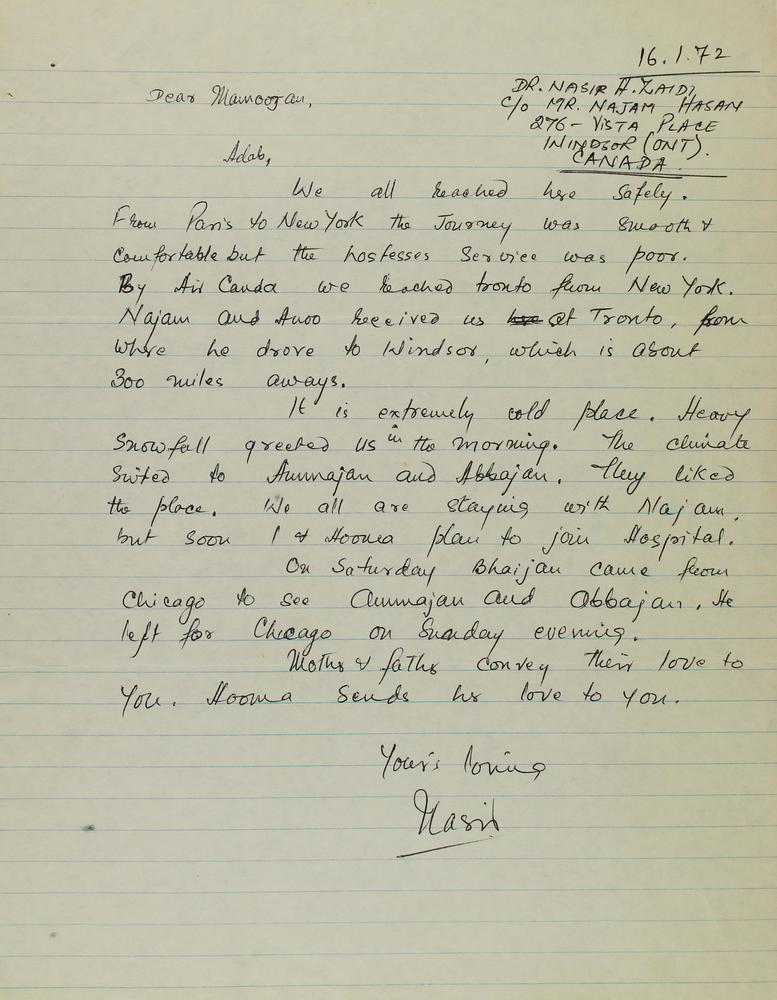 16.1.72
DR. NASIR H. ZAIDI,
C/o MR. NAJAM HASAN
276 - VISTA PLACE
WINDSOR (ONT).
CANADA.
Dear Mamoojan,
Adab,
We all reached here safely.
From Paris to New York the Journey was smooth &
comfortable but the hostesses service was poor.
By Air Canda we reached tronto from New York.
Najam and Anoo received us at Tronto, from
where he drove to Windsor, which is about
300 miles aways.
It is extremely cold place. Heavy
snowfall greeted us in the morning. The climate
suited to Ammajan and Abbajan. They liked
the place. We all are staying with Najam,
but soon I & Hooma plan to join Hospital.
On Saturday Bhaijan came from
Chicago to see Ammajan and Abbajan. He
left for Chicago on Sunday evening.
Mother & father convey their love to
you. Hooma sends her love to you.
Your's loving
Nasir